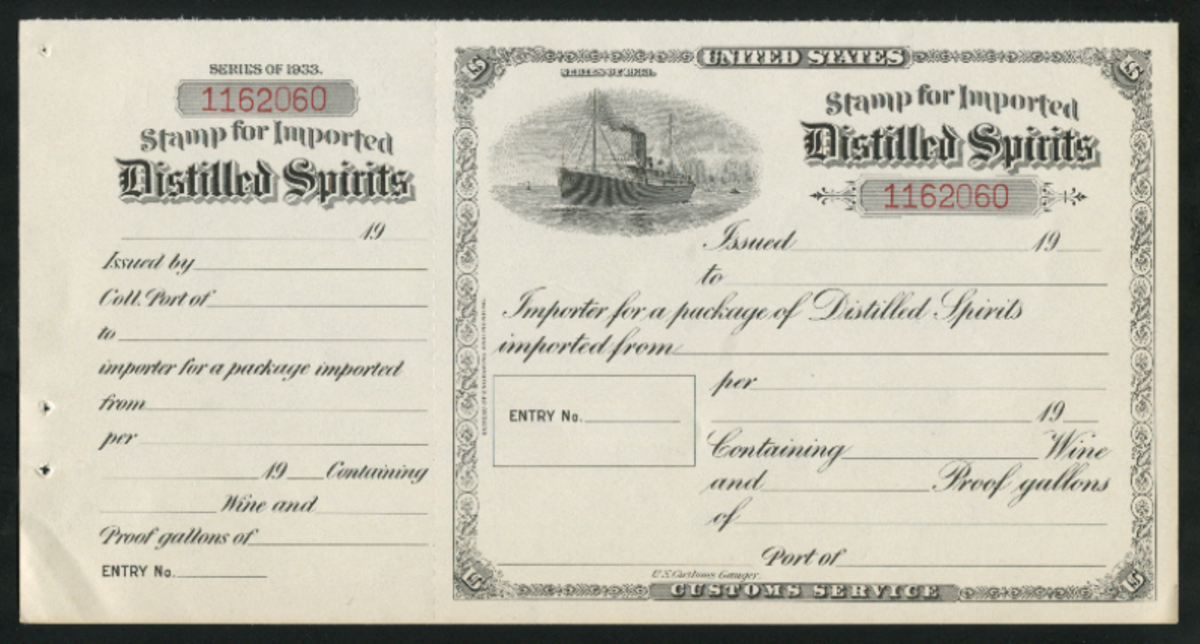 SERIES OF 1933.
1162060
Stamp for Imported
Distilled Spirits
19
Issued by
Coll. Port of
to
importer for a package imported
from
per
19 Containing
Wine and
Proof gallons of
ENTRY No.
UNITED STATES
SERIES OF 1933.
Stamp for Imported
Distilled Spirits
1162060
Issued 19
to
Importer for a package of Distilled Spirits
imported from
per
ENTRY No.
19
Containing Wine
and Proof gallons
of
Port of
U.S. Customs Gauger.
CUSTOMS SERVICE